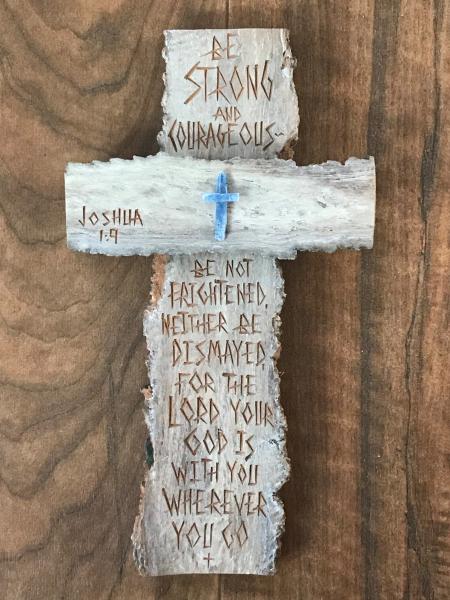 BE
STRONG
AND
COURAGEOUS~
JOSHUA
1:9
BE NOT
FRIGHTENED,
NEITHER BE
DISMAYED,
FOR THE
LORD YOUR
GOD IS
WITH YOU
WHEREVER
YOU GO